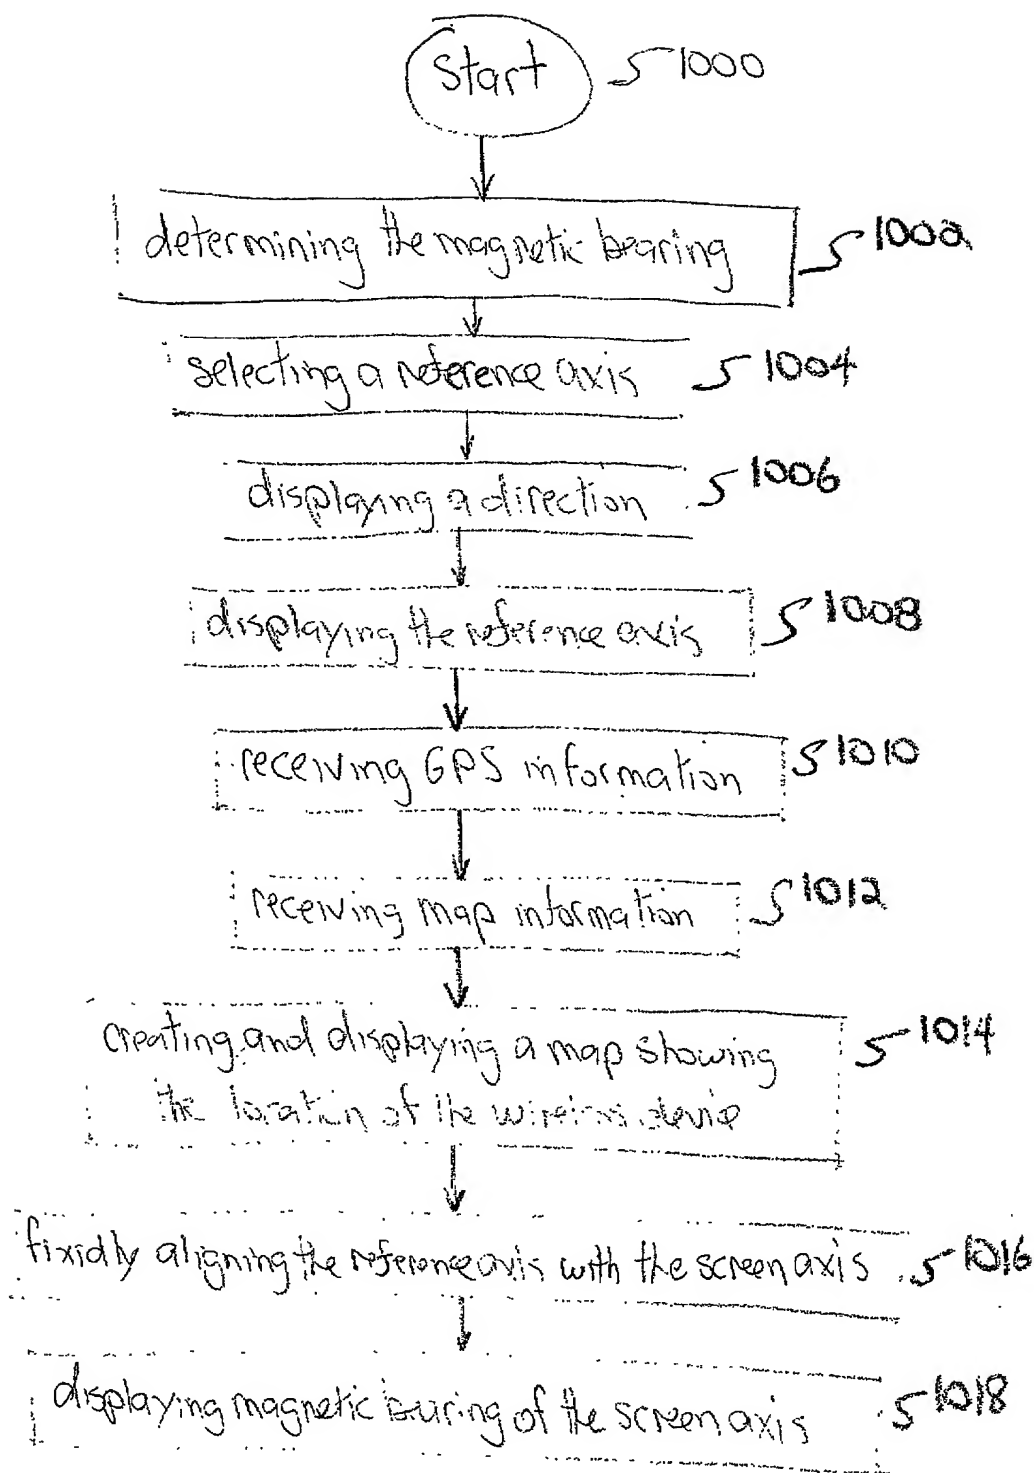 start 1000
determining the magnetic bearing 1002
selecting a reference axis 1004
displaying a direction 1006
displaying the reference axis 1008
receiving GPS information 1010
receiving map information 1012
creating and displaying a map showing 1014
the location of the wireless device
fixidly aligning the reference axis with the screen axis 1016
displaying magnetic bearing of the screen axis 1018